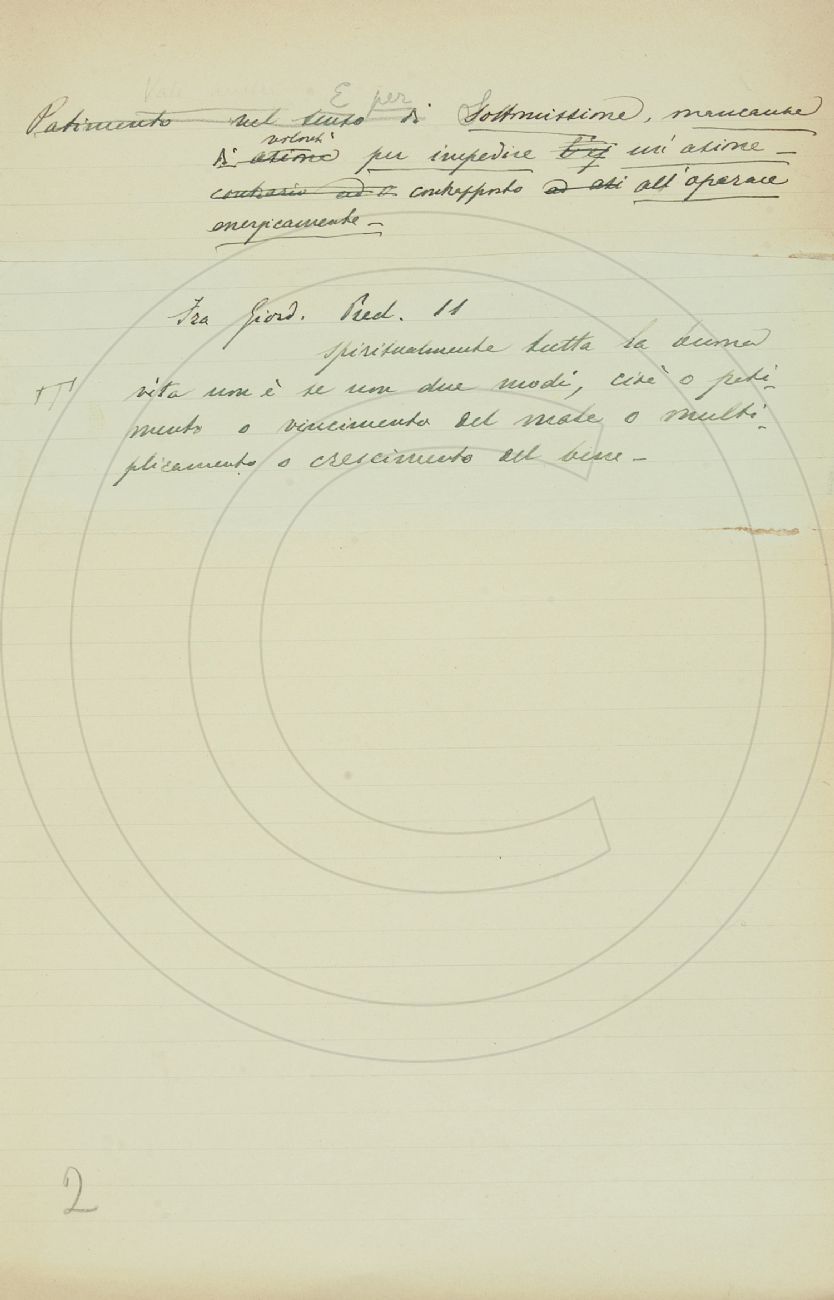 E per
Patimento nel senso di Sottomissione, mancanza
volontà
di azione per impedire un'azione –
contrario ad contrapposto ad ati all'operare
energicamente –
Fra Giord. Pred. 11
spiritualmente tutta la buona
vita non è se non due modi, cioè o pati-
mento o vincimento del male o multi-
plicamento o crescimento del bene –
2